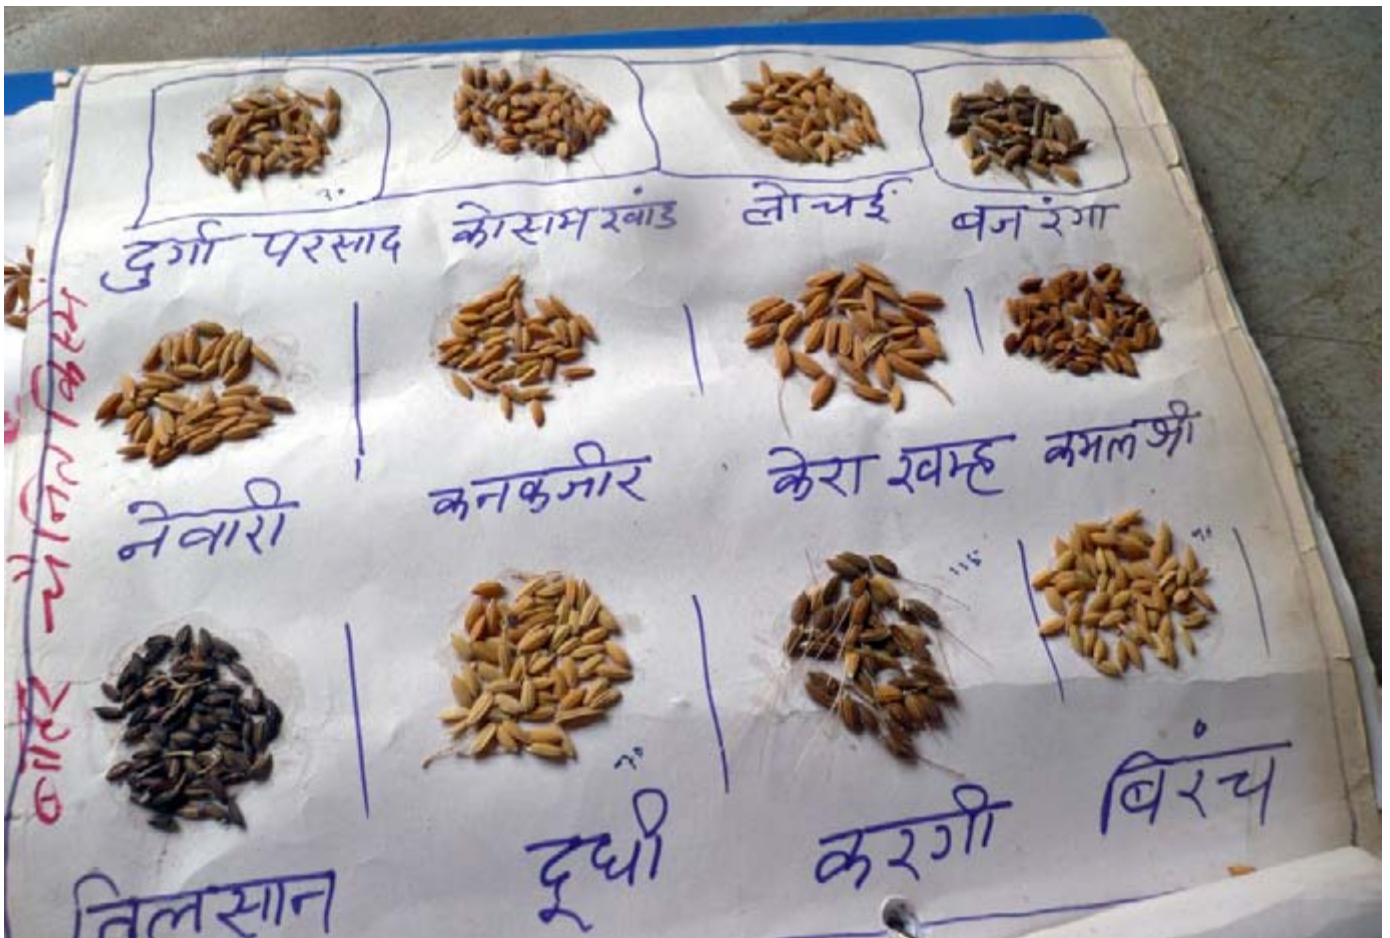 दुर्गा परसाद कोसमखांड लोचई बजरंगा
नेवारी कनकजीर केरा खम्ह कमल श्री
तिलसान दूधी करगी बिरंच
बाहर चेनित किस्में